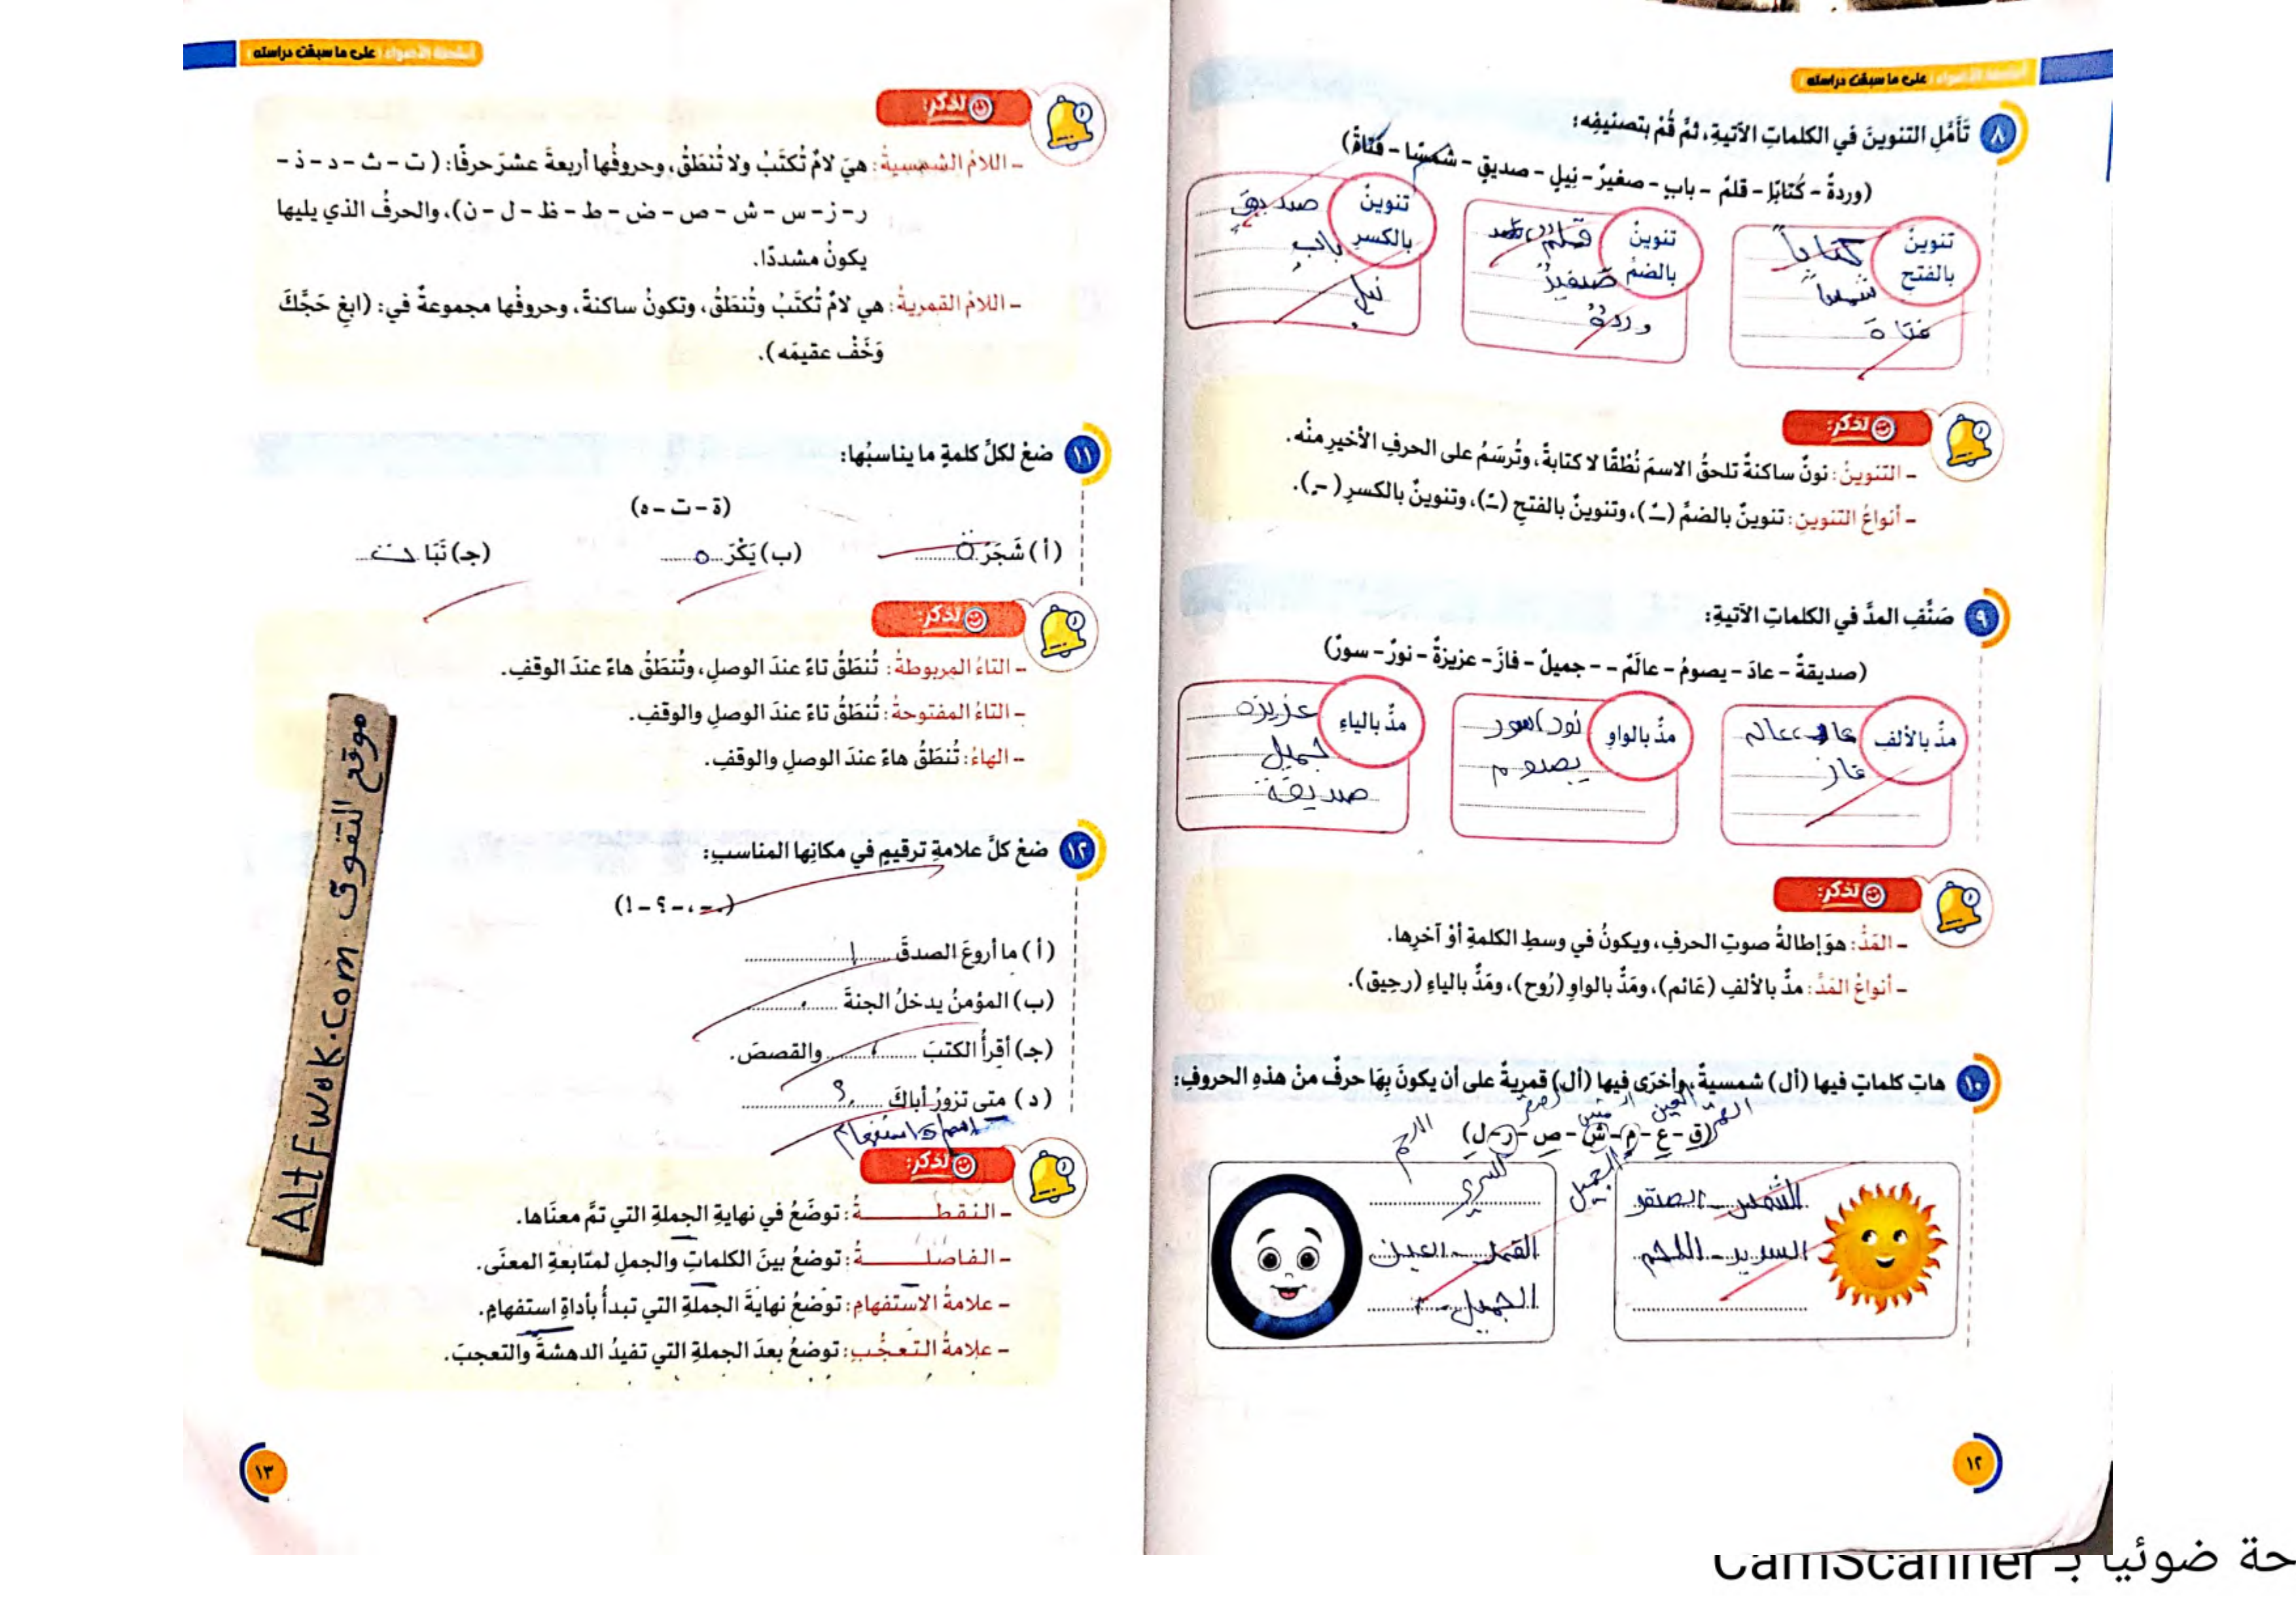 على ما سبقت دراسته
٨ تَأَمَّلِ التنوينَ في الكلماتِ الآتيةِ، ثمَّ قُمْ بتصنيفِه:
(وردةٌ - كُتابًا - قلمٌ - بابٍ - صغيرٌ - نِيلٍ - صديقٍ - شمسًا - فتاةً)
تنوينٌ بالفتحِ
كتاباً
شمساً
فتاة
تنوينٌ بالضمِّ
قلمٌ
صغيرٌ
وردةٌ
تنوينٌ بالكسرِ
صديقٍ
بابٍ
نيلٍ
تذكر:
- التنوينُ: نونٌ ساكنةٌ تلحقُ الاسمَ نُطْقًا لا كتابةً، وتُرسَمُ على الحرفِ الأخيرِ منْه.
- أنواعُ التنوينِ: تنوينٌ بالضمِّ (ـٌ)، وتنوينٌ بالفتحِ (ـً)، وتنوينٌ بالكسرِ (ـٍ).
٩ صَنِّفِ المدَّ في الكلماتِ الآتيةِ:
(صديقةٌ - عادَ - يصومُ - عالَمٌ - - جميلٌ - فازَ - عزيزةٌ - نورٌ - سورٌ)
مدٌّ بالألفِ
عاد، عالم
فاز
مدٌّ بالواوِ
نور، سور
يصوم
مدٌّ بالياءِ
عزيزة
جميل
صديقة
تذكر:
- المَدُّ: هوَ إطالةُ صوتِ الحرفِ، ويكونُ في وسطِ الكلمةِ أوْ آخرِها.
- أنواعُ المَدِّ: مدٌّ بالألفِ (عَائم)، ومَدٌّ بالواوِ (رُوح)، ومَدٌّ بالياءِ (رحِيق).
١٠ هاتِ كلماتٍ فيها (أل) شمسيةٌ، وأخرَى فيها (أل) قمريةٌ على أن يكونَ بِهَا حرفٌ منْ هذهِ الحروفِ:
(ق - ع - م - ش - ص - ر - ل)
الشمس - الصقر
السرير - اللحم
القمر - العين
الجميل
١٢
على ما سبقت دراسته
تذكر:
- اللامُ الشمسيةُ: هيَ لامٌ تُكتَبُ ولا تُنطَقُ، وحروفُها أربعةَ عشرَ حرفًا: (ت - ث - د - ذ -
ر - ز - س - ش - ص - ض - ط - ظ - ل - ن)، والحرفُ الذي يليها
يكونُ مشددًا.
- اللامُ القمريةُ: هي لامٌ تُكتَبُ وتُنطَقُ، وتكونُ ساكنةً، وحروفُها مجموعةٌ في: (ابغِ حَجَّكَ
وَخَفْ عقيمَه).
١١ ضعْ لكلِّ كلمةٍ ما يناسبُها:
(ة - ت - ه)
(أ) شَجَرَ ة
(ب) يَكْرَ ه
(جـ) نَبَا ت
تذكر:
- التاءُ المربوطةُ: تُنطَقُ تاءً عندَ الوصلِ، وتُنطَقُ هاءً عندَ الوقفِ.
- التاءُ المفتوحةُ: تُنطَقُ تاءً عندَ الوصلِ والوقفِ.
- الهاءُ: تُنطَقُ هاءً عندَ الوصلِ والوقفِ.
١٢ ضعْ كلَّ علامةِ ترقيمٍ في مكانِها المناسبِ:
(. - ، - ؟ - !)
(أ) ما أروعَ الصدقَ !
(ب) المؤمنُ يدخلُ الجنةَ .
(جـ) أقرأُ الكتبَ ، والقصصَ.
(د) متى تزورُ أباكَ ؟
اسم استفهام
تذكر:
- النقطــــــةُ: توضَعُ في نهايةِ الجملةِ التي تمَّ معنَاها.
- الفاصلــــــةُ: توضعُ بينَ الكلماتِ والجملِ لمتابعةِ المعنَى.
- علامةُ الاستفهامِ: توضعُ نهايةَ الجملةِ التي تبدأُ بأداةِ استفهامٍ.
- علامةُ التعجُّبِ: توضعُ بعدَ الجملةِ التي تفيدُ الدهشةَ والتعجبَ.
١٣
موقع التفوق ALtFwok.com
حة ضوئيا بـ CamScanner